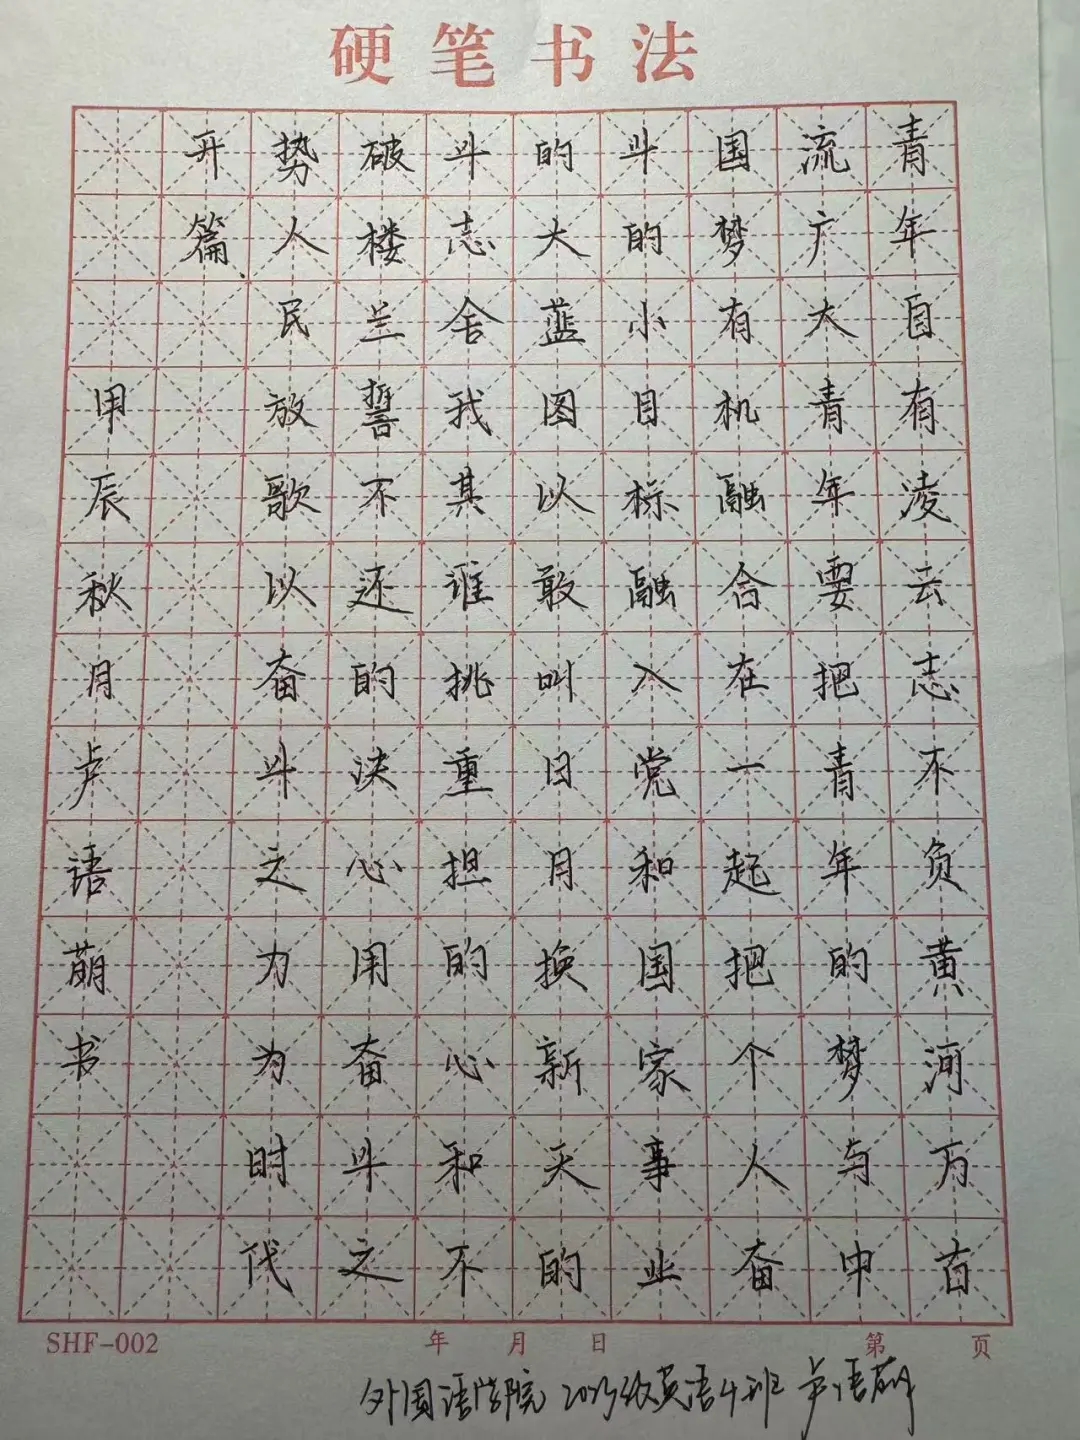 硬笔书法
青年自有凌云志不负黄河万古
流广大青年要把青年的梦与中
国梦有机融合在一起把个人奋
斗的小目标融入党和国家事业
的大蓝图以敢叫日月换新天的
斗志舍我其谁挑重担的心和不
破楼兰誓不还的决心用奋斗之
势人民放歌以奋斗之力为时代
开篇、
甲辰秋月卢语萌书
SHF-002 年 月 日 第 页
外国语学院 2023级英语4班 卢语萌